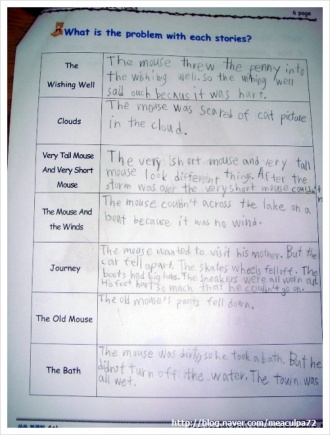 6 page
What is the problem with each stories?
The
Wishing Well
The mouse threw the penny into
the wishing well. so the wishing well
said ouch becaus it was hurt.
Clouds
The mouse was scared of cat picture
in the cloud.
Very Tall Mouse
And Very Short
Mouse
The very short mouse and very tall
mouse look different things. After the
storm was over the very short mouse couldn't
The Mouse And
the Winds
The mouse couldn't across the lake on a
boat because it was no wind.
Journey
The mouse wanted to visit his mother. But the
car fell apart. The skates wheels fell off. The
boots had big holes. The sneakers were all worn out
His feet hurt so much that he couldn't go on.
The Old Mouse
The old mouse's pants fell down.
The Bath
The mouse was dirty so he took a bath. But he
didn't turn off the water. The town was
all wet.
http://blog.naver.com/meaculpa72